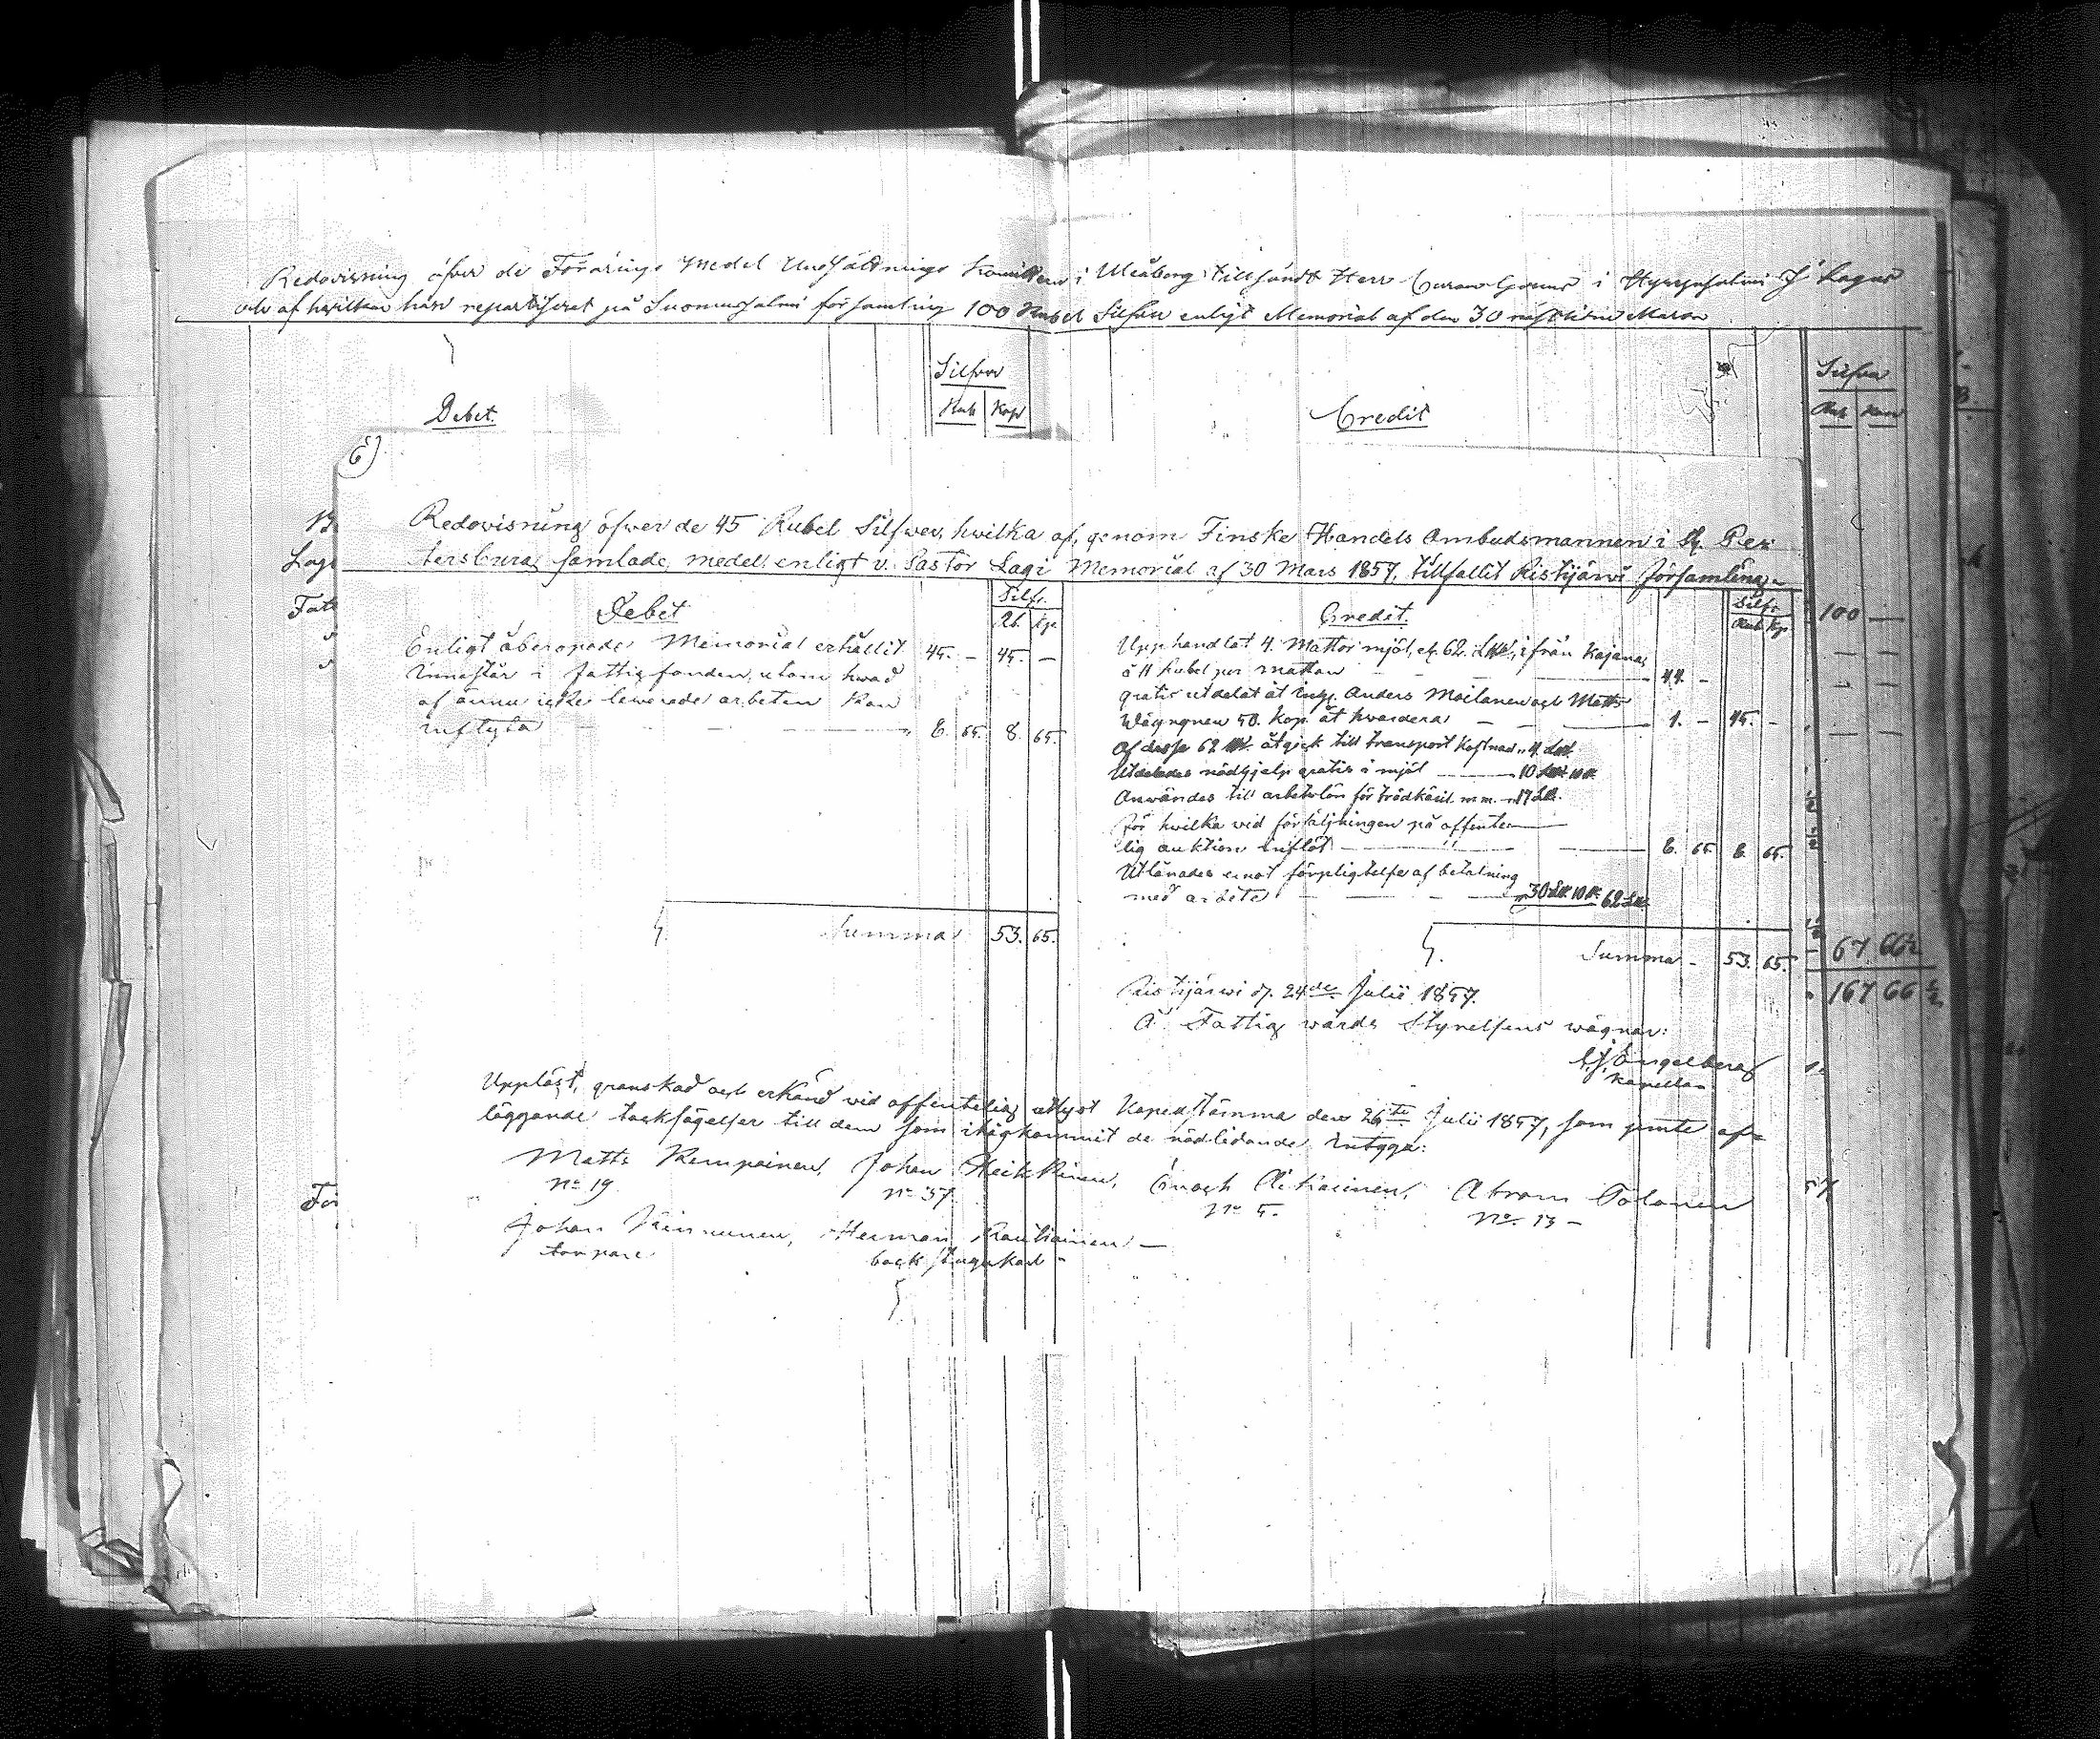 Redovisning öfver de Förärings Medel Undsättnings Komitteen i Uleåborg tillsändt Herr i Hyrynsalmi J Lagus
och af hvilken han repartiserat på Suomussalmi församling 100 Rubel Silfver enligt Memorial af den 30 Mars
Silfver
Rub Kop
Debet.
Credit
Silfver
Rub Kop
6)
Redovisning öfwer de 45 Rubel Silfwer, hvilka af, genom Finske Handels Ombudsmannen i St. Pe=
tersburg samlade medel, enligt v. Pastor Lagi Memorial af 30 Mars 1857, tillfallit Ristijärwi församling.
Debet
Silfr.
Rb. Kp.
Enligt åberopade Memorial erhållit 45. - 45. -
Innestår i fattigfonden, utom hwad
af ännu icke lewererade arbeten kan
inflyta 8. 65. 8. 65.
Summa 53. 65.
Credit.
Silfr.
Rub Kp.
Upphandlat 4. Mattor mjöl, af 62. ifrån Kajana,
à 11 Rubel per mattan 44. -
gratis utdelat åt Anders Moilanen och Matts
50. Kop. åt hvardera 1. - 45. -
Af dessa 62 åtgick till transport kostnad 4.
Utdelades nödhjelp gratis i mjöl 10 10
Anwändes till arbetslön för trädkäril m.m. 17
för hwilka vid försäljningen på offente-
lig auktion inflöt 8. 65. 8. 65.
Utlånades emot förpligtelse af betalning
med arbete 30 10 62
Summa - 53. 65.
Ristijärwi d. 24de Julii 1857.
Å Fattig wårds Styrelsens wägnar:
Engelberg
Kapellan
100 —
67 66½
167 66½
Uppläst, granskad och erkänd vid offentelig utlyst stämma den 26te Julii 1857, som jemte af=
läggande tacksägelser till dem som ihågkommit de nödlidande intyga:
Matts Kemppainen, Johan Heikkinen, Enoch Abram Tolonen
No 19 No 37. No 5. No. 13 -
Johan Kinnunen, Herman Rautiainen —
torpare backstugukarl -